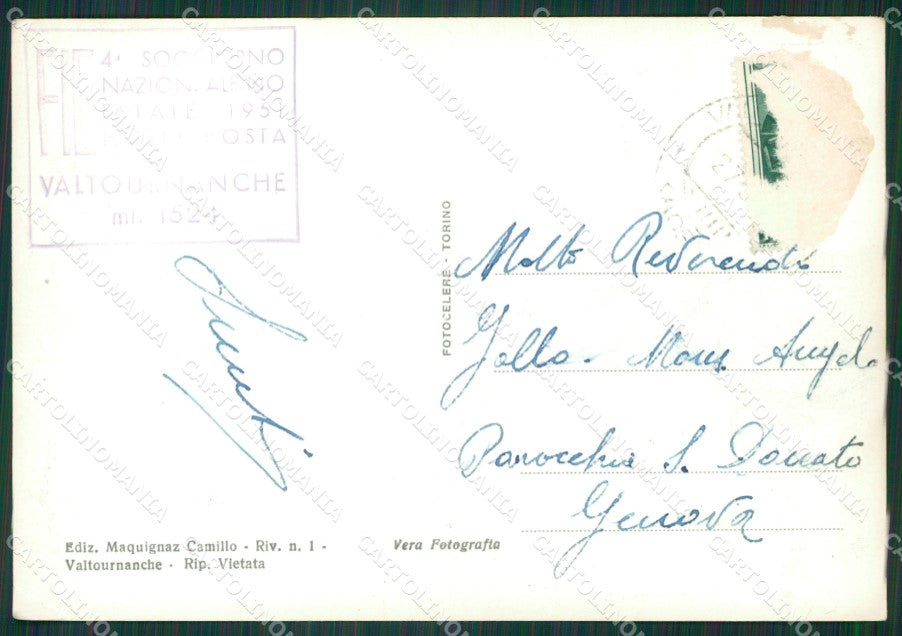 4° SOGGIORNO
NAZION. ALPINO
ESTATE 1951
VALTOURNANCHE
mt. 1524
FOTOCELERE - TORINO
Molto Reverendo
Gallo - Mons. Angelo
Parocchia S. Donato
Genova
Ediz. Maquignaz Camillo - Riv. n. 1 -
Valtournanche - Rip. Vietata
Vera Fotografia
CARTOLINOMANIA